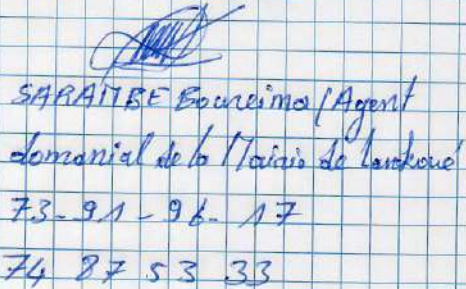 SARAMBE Boureima/Agent
domanial de la Mairie de Lankoué
73-91-96-17
74 87 53 33